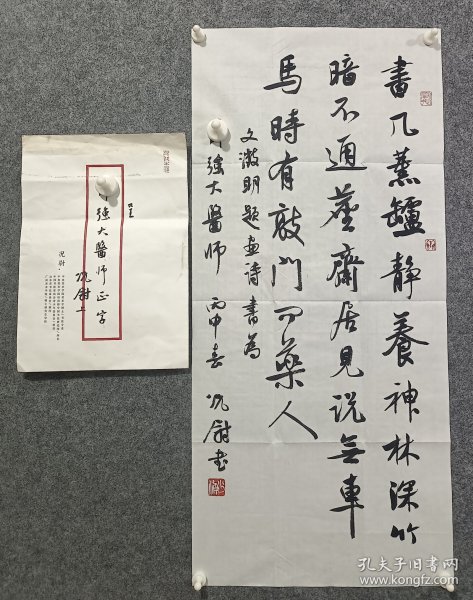 書几薰鑪静養神林深竹
暗不通塵齋居見説無車
馬時有敲門问藥人
文徵明題画诗書為
强大醫师 丙申春 况尉书
呈
强大醫师正字
况尉上
况尉
孔夫子旧书网
www.kongfz.com